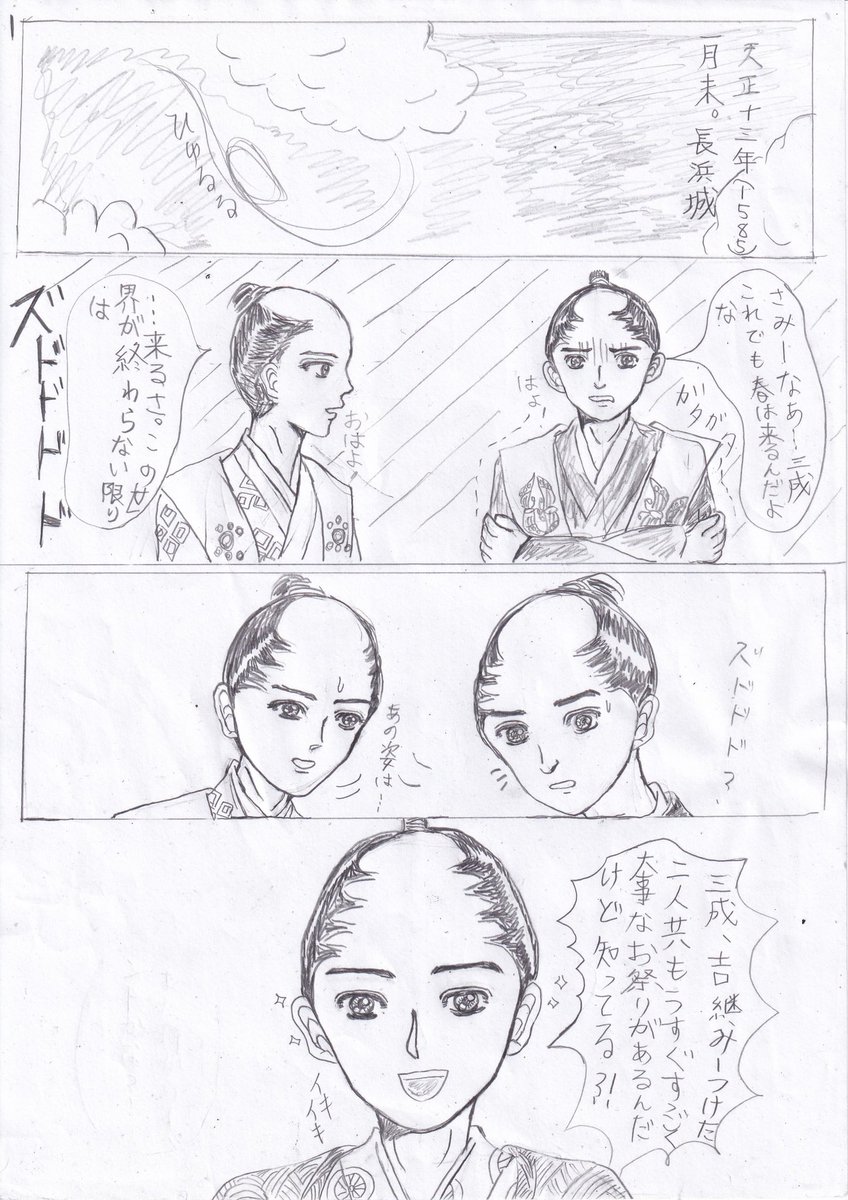 1
天正十三年(1585)
一月末。長浜城
ひゅるる
さみーなぁー三成
これでも春は来るんだよ
な
ガタガター
はよ!
おはよ!
…来るさ。この世
界が終わらない限り
は
ズドドドド
ズドドド?
あの姿は…
三成、吉継みーつけた
二人共もうすぐすごく
大事なお祭りがあるんだ
けど知ってるう!
イキイキ